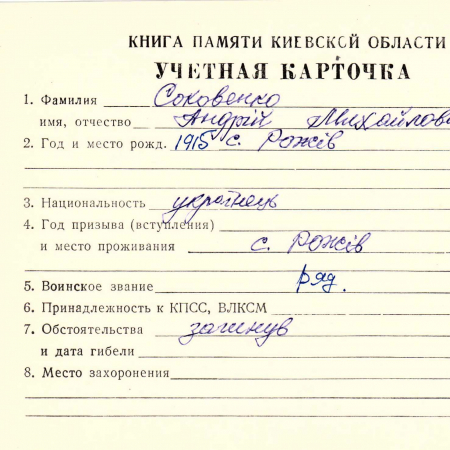 КНИГА ПАМЯТИ КИЕВСКОЙ ОБЛАСТИ
УЧЕТНАЯ КАРТОЧКА
1. Фамилия Соковенко
имя, отчество Андрій Михайлов
2. Год и место рожд. 1915 с. Рожів
3. Национальность українець
4. Год призыва (вступления)
и место проживания с. Рожів
5. Воинское звание ряд.
6. Принадлежность к КПСС, ВЛКСМ
7. Обстоятельства загинув
и дата гибели
8. Место захоронения